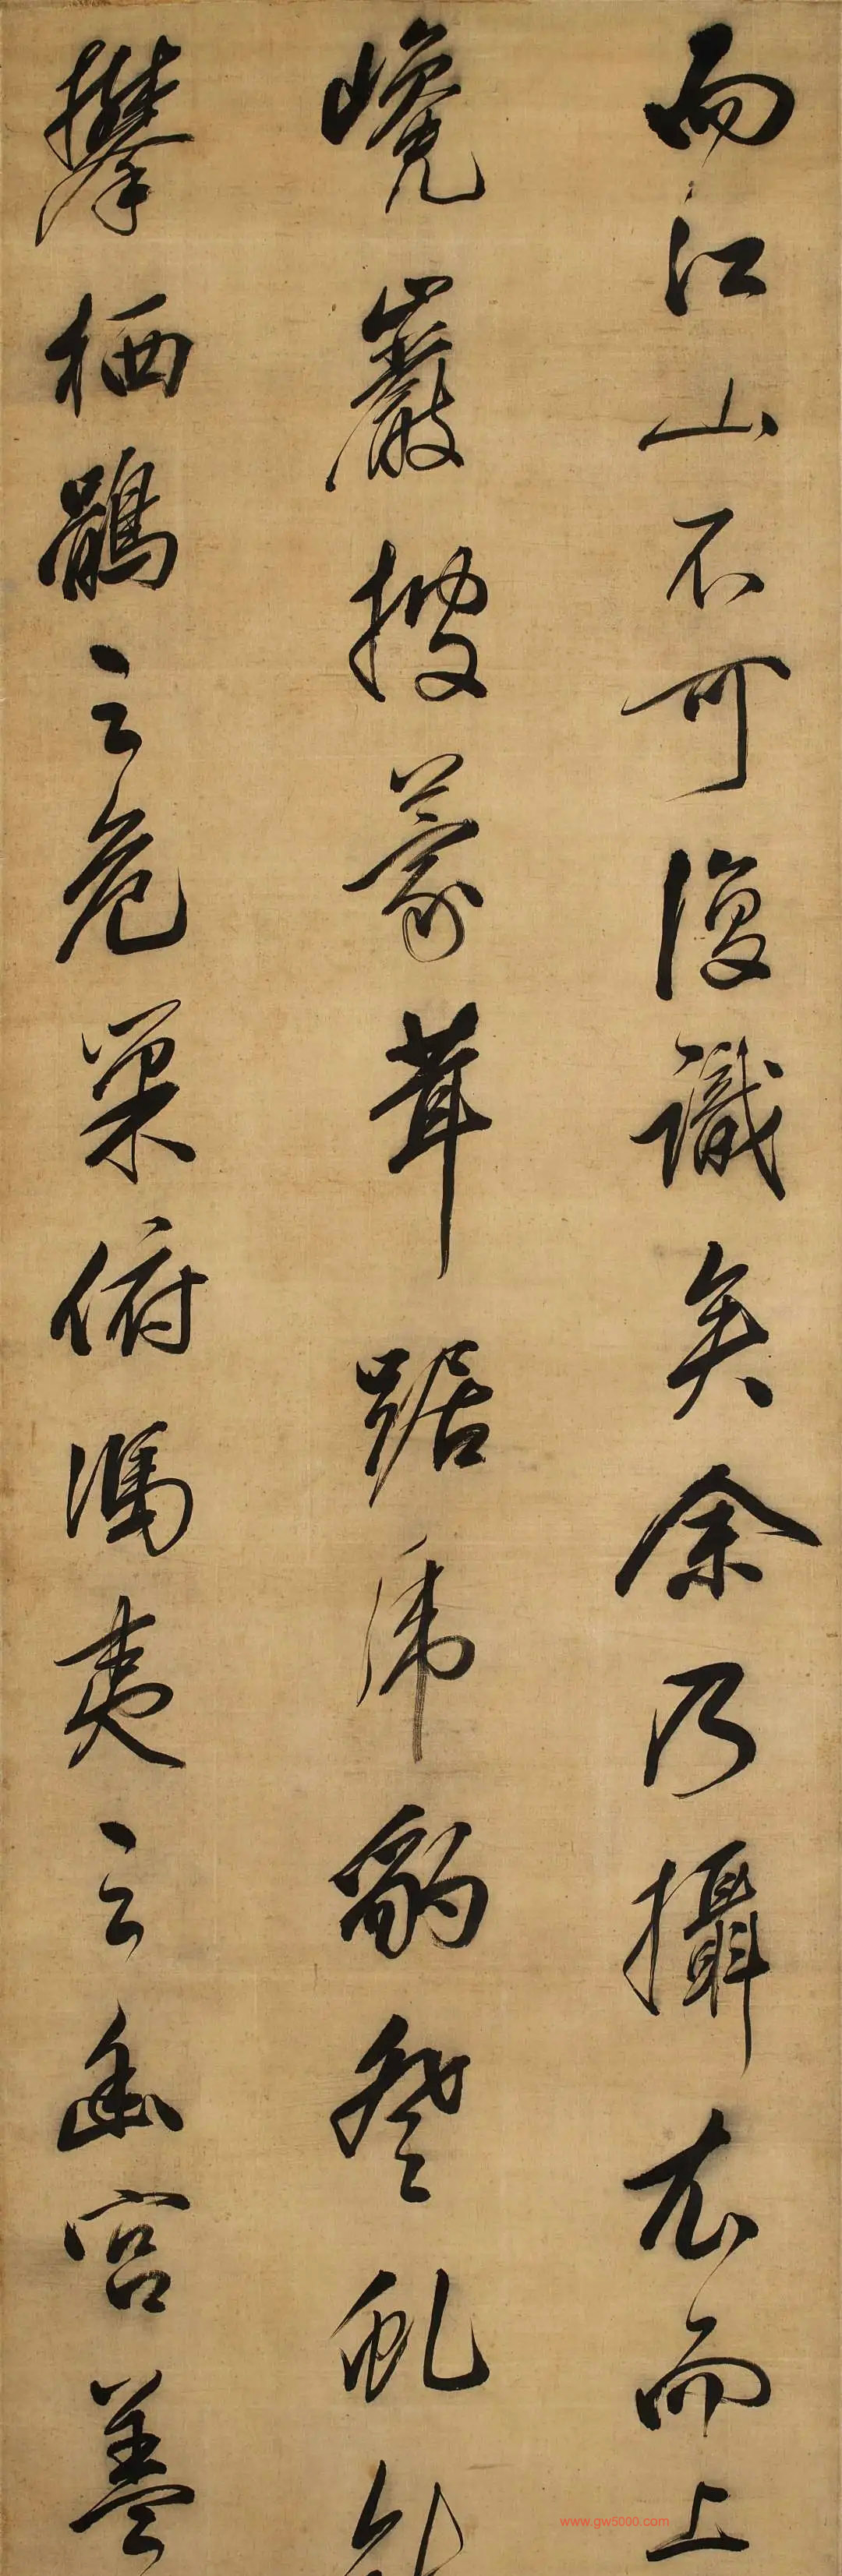 而江山不可復識矣余乃攝衣而上
巉巖披蒙茸踞虎豹登虬
攀栖鶻之危巢俯馮夷之幽宮蓋
www.gw5000.com